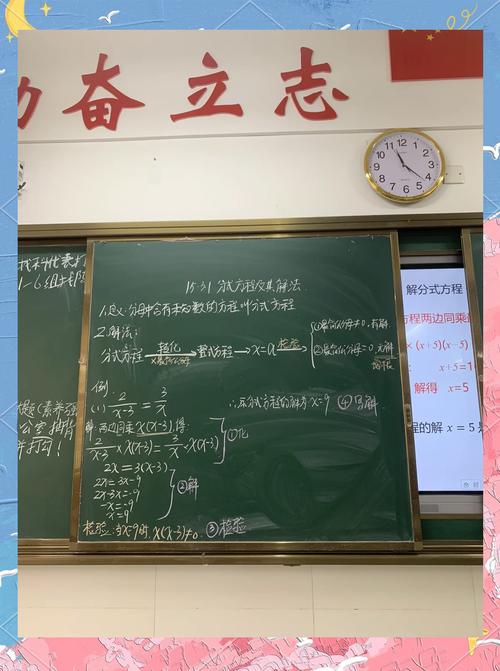 奋立志
15.3.1 分式方程及其解法
1.定义:分母中含有未知数的方程叫分式方程
2.解法:
分式方程 整化 ×最简公分母 → 整式方程 → x=a 检验 → ①最简公分母≠0,有解
②最简公分母=0,无解
例
(1) 2/(x-3) = 3/x
解:两边同乘 x(x-3),得
2/(x-3) × x(x-3) = 3/x × x(x-3) ①化
2x=3(x-3)
2x=3x-9
2x-3x=-9
-x=-9
x=9
②解
检验:当x=9时,x(x-3)≠0 ③检验
∴原分式方程的解为x=9 ④写解
1~6组
解分式方程
方程两边同乘
×(x+5)(x-5)
x+5=1
解得 x=5
程的解 x=5